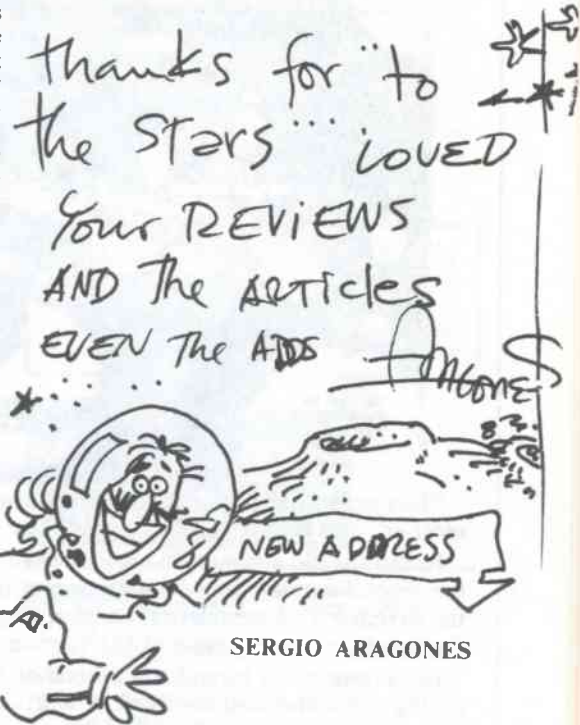 thanks for "to
the Stars" LOVED
Your REVIEWS
AND The ARTicles
EVEN The ADS
ARAGONES
NEW ADDRESS
SERGIO ARAGONES